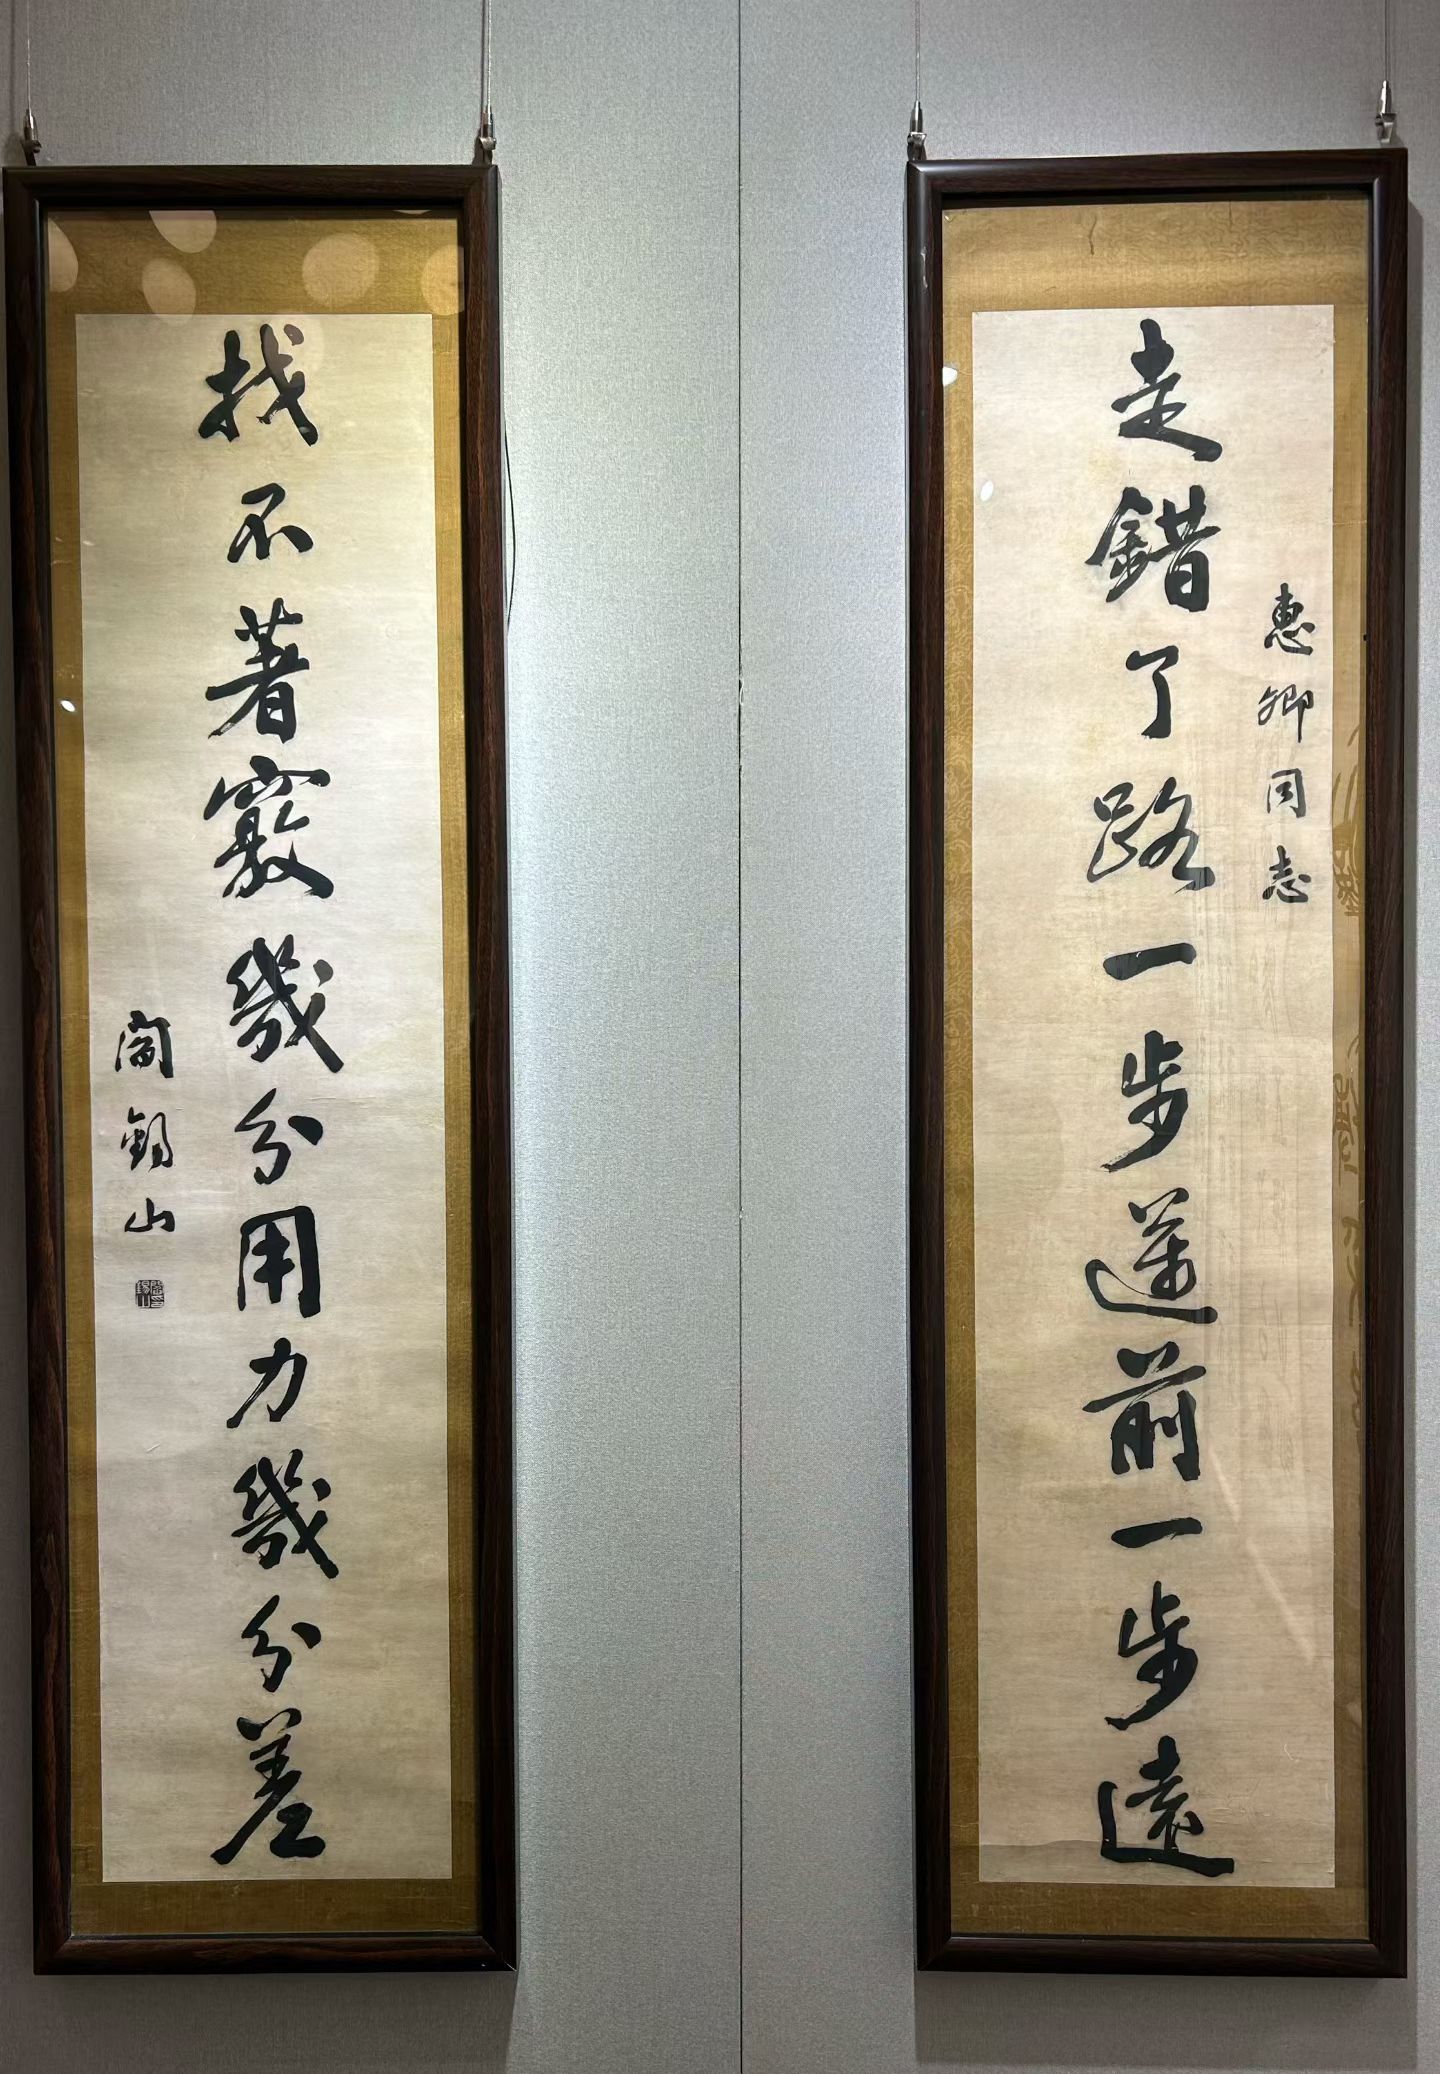 惠卿同志
走錯了路一步遠前一步遠
找不著竅幾分用力幾分差
閻錫山